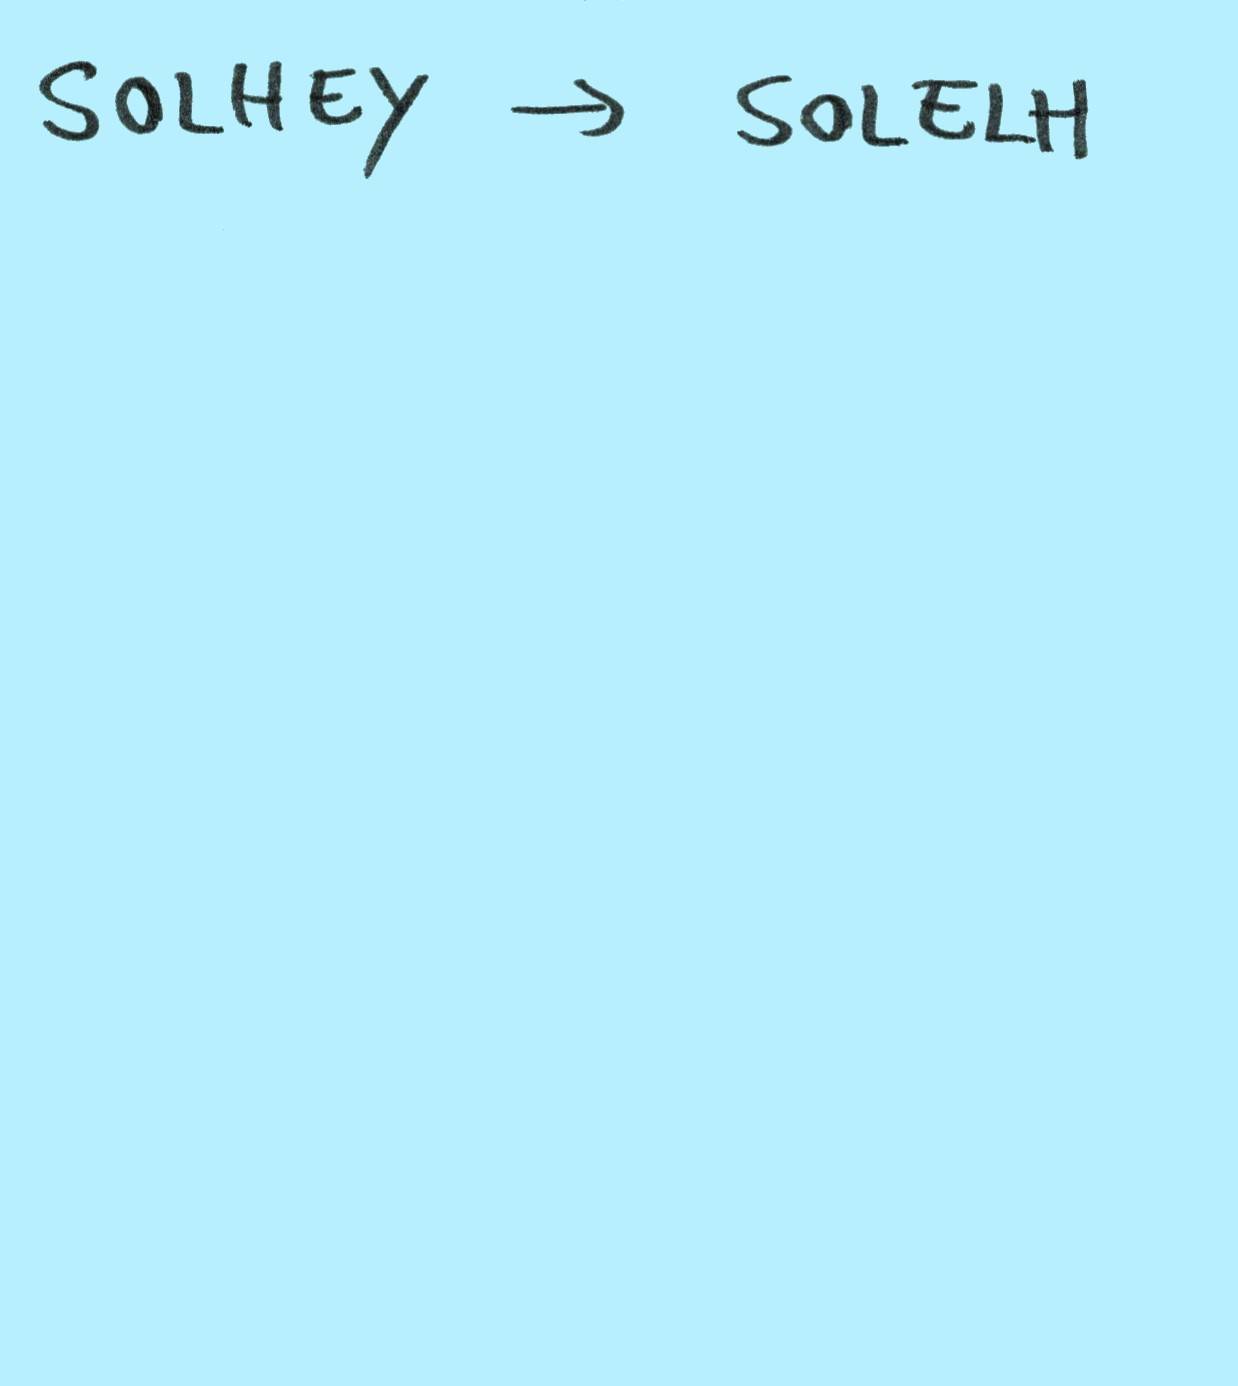 SOLHEY → SOLELH